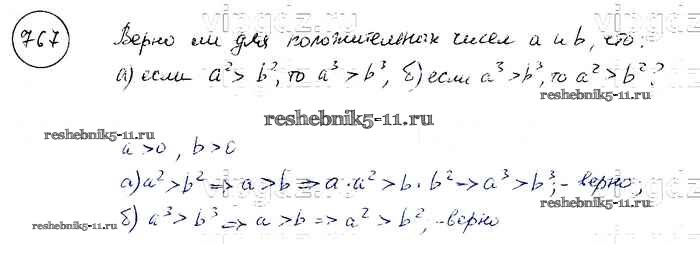 767 Верно ли для положительных чисел a и b, что:
а) если a² > b², то a³ > b³, б) если a³ > b³, то a² > b²?
reshebnik5-11.ru
reshebnik5-11.ru
reshebnik5-11.ru
a > 0, b > 0
а) a² > b² => a > b => a · a² > b · b² => a³ > b³; - верно,
reshebnik5-11.ru
б) a³ > b³ => a > b => a² > b², - верно
reshebnik5-11.ru